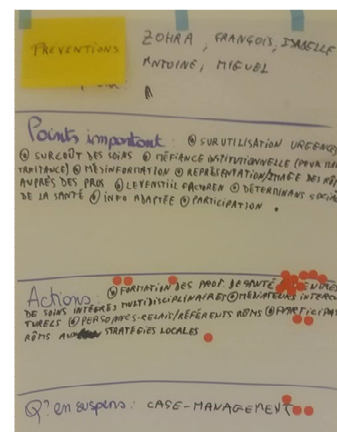 PREVENTIONS
ZOHRA, FRANÇOIS, ISABELLE
ANTOINE, MIGUEL
Points important : SURUTILISATION URGENCES
SURCOÛT DES SOINS MÉFIANCE INSTITUTIONNELLE (POUR
TRAITANCE) MÉSINFORMATION REPRÉSENTATION/IMAGE DES
AUPRÈS DES PROS LEVENSTIJL FACTOREN DÉTERMINANT
DE LA SANTÉ INFO ADAPTÉE PARTICIPATION
Actions : FORMATION DES PROF DE SANTÉ
DE SOINS INTÉGRÉS MULTIDISCIPLINAIRES MÉDIATEURS
TURELS PERSONNES-RELAIS/RÉFÉRENTS RÔMS
RÔMS AUX STRATÉGIES LOCALES
Q? en suspens : CASE-MANAGEMENT